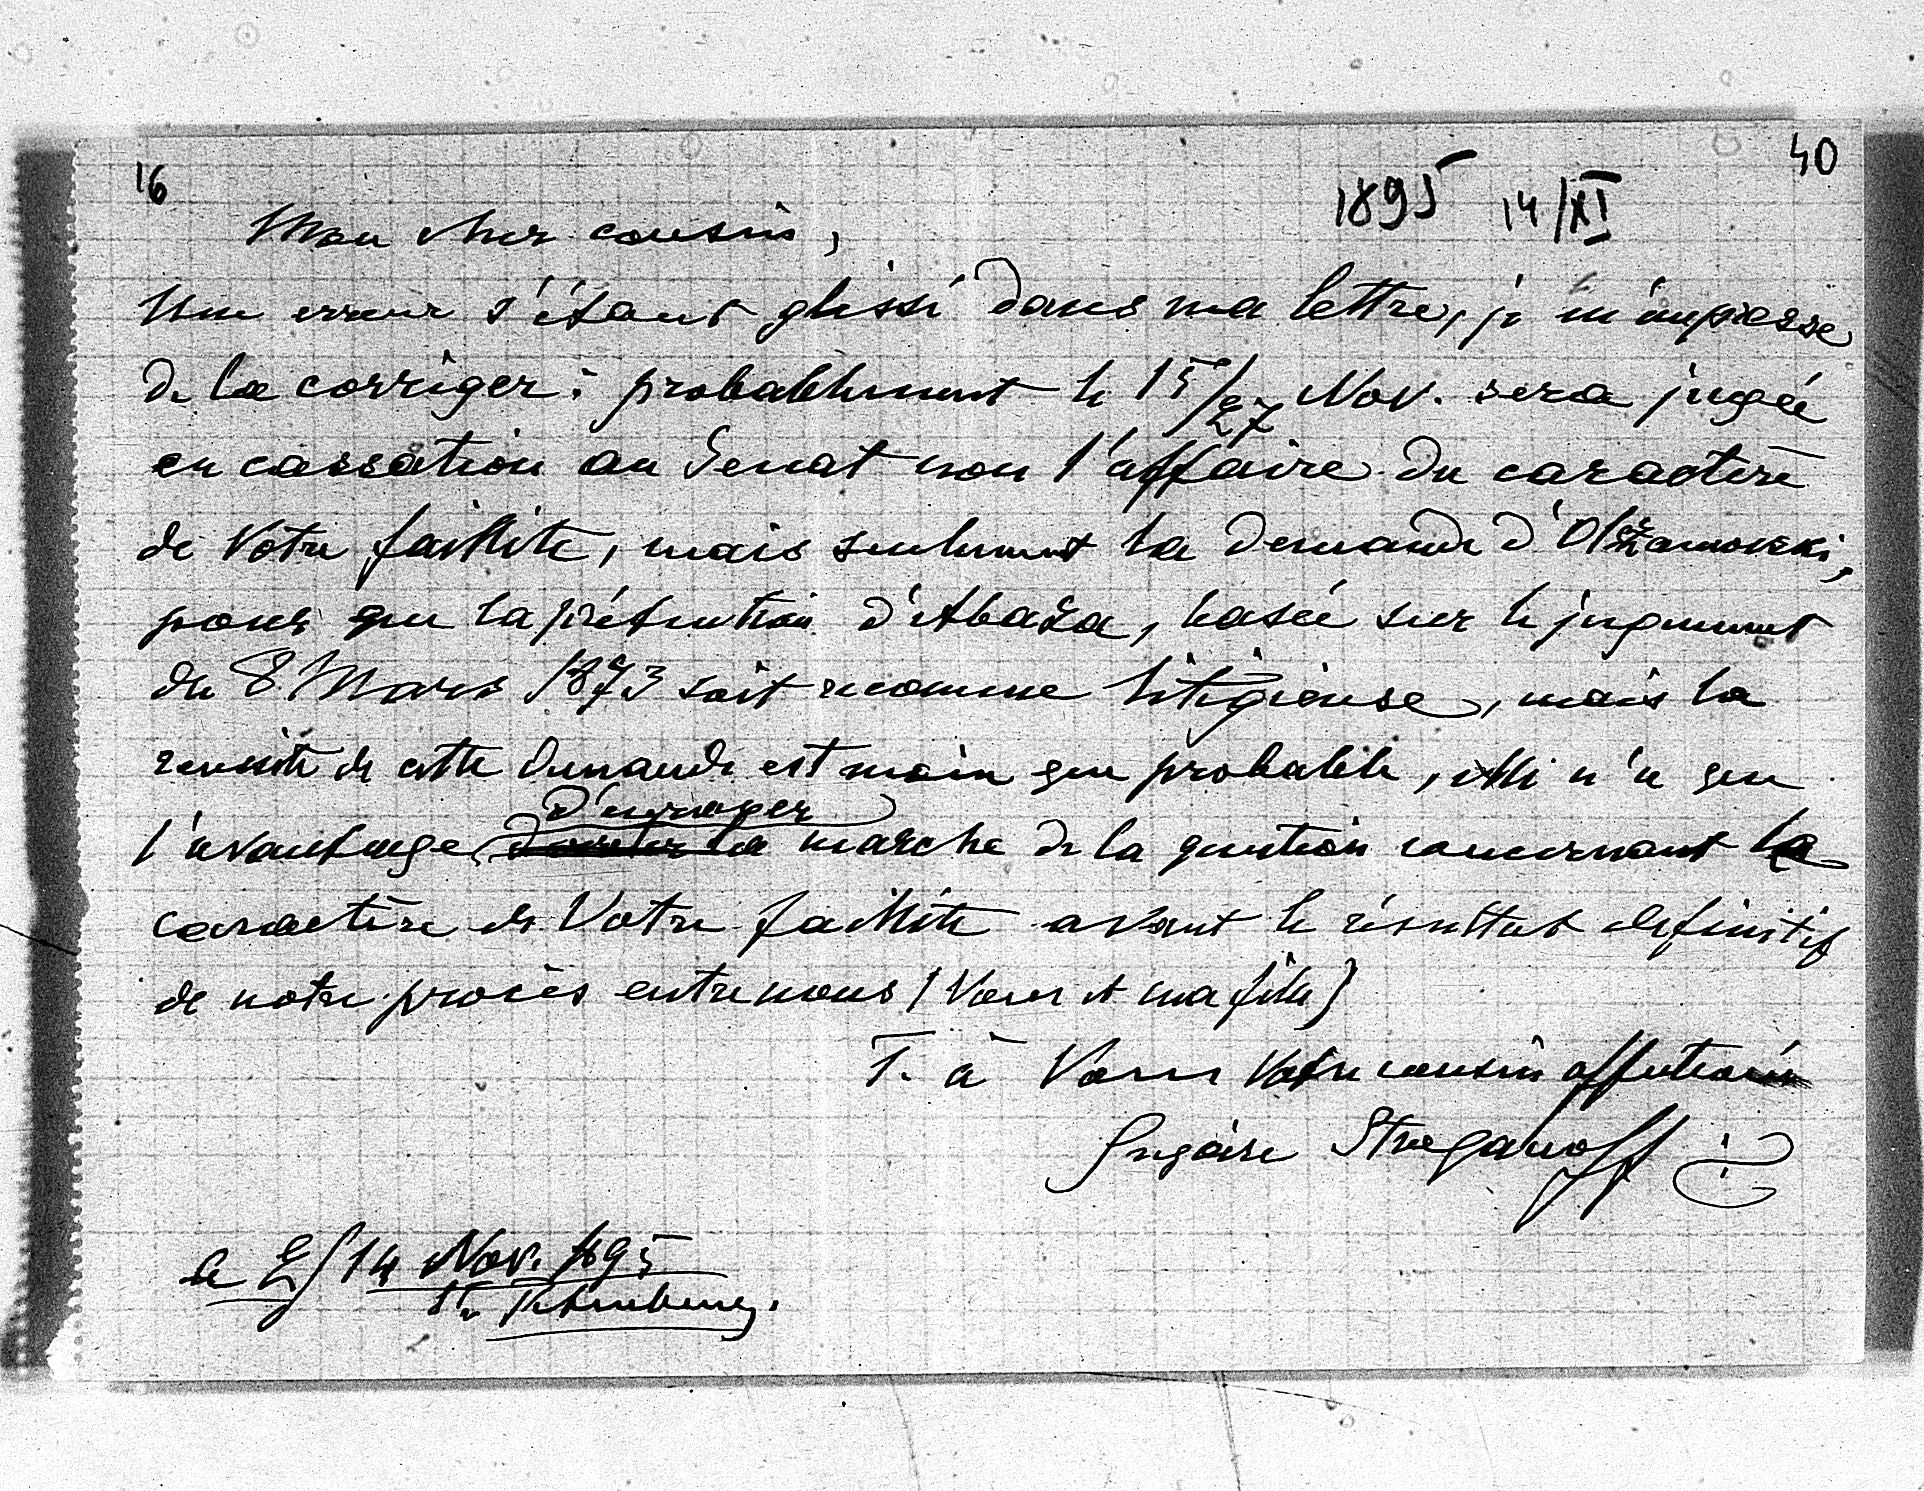 16
40
1895 14/XI
Mon cher cousin,
Une erreur s'étant glissé dans ma lettre, je m'empresse
de la corriger: probablement le 15/27 Nov. sera jugée
en cassation au Senat non l'affaire du caractère
de Votre faillite, mais seulement la demande d'Olszamovski,
pour que la prétention d'Abaza, basée sur le jugement
du 8 Mars 1873 soit reconnue litigieuse, mais la
reussite de cette demande est moin que probable, elle n'a que
d'enrayer
l'avantage la marche de la question concernant le
caractère de Votre faillite avant le résultat definitif
de notre procès entre nous (Vous et ma fille)
T. à Vous Votre cousin affectioné
Grégoire Stroganoff
le 2/14 Nov. 1895
St. Petersbourg.